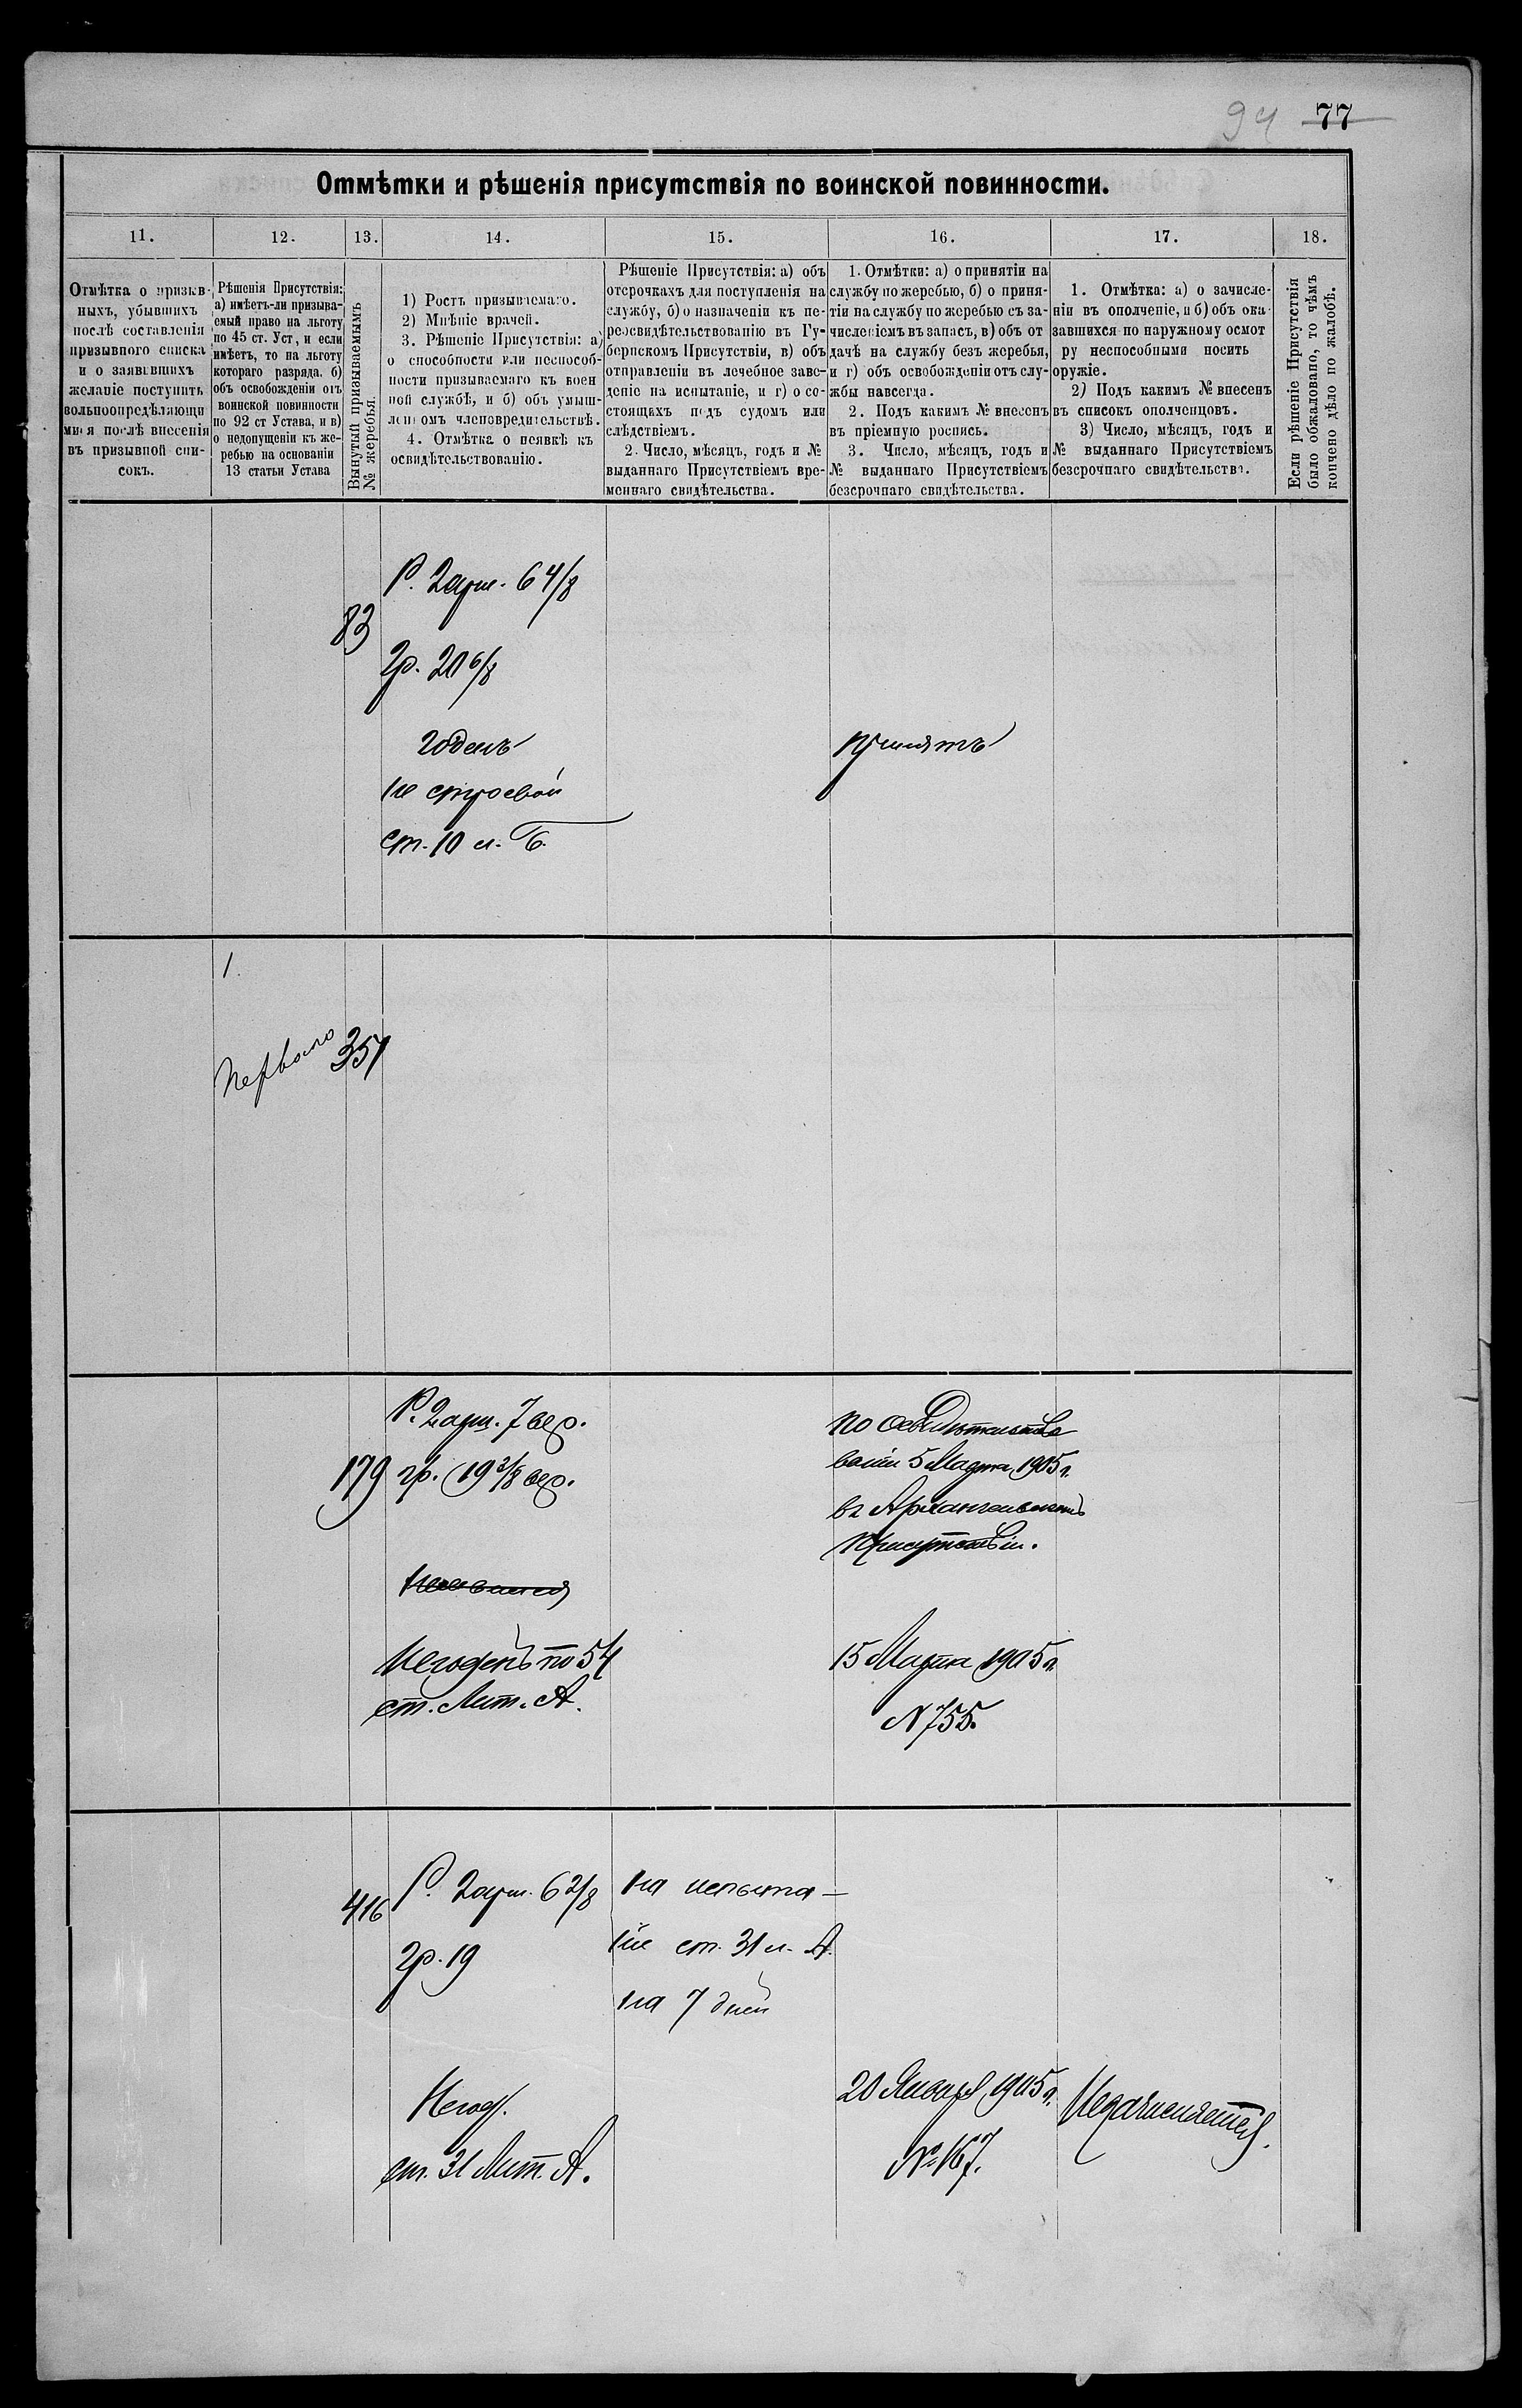 94 77
Отмѣтки и рѣшенія присутствія по воинской повинности.
11. 12. 13. 14. 15. 16. 17. 18.
Отмѣтка о призыв-
ныхъ, убывшихъ
послѣ составленія
призывного списка
и о заявившихъ
желаніе поступить
вольноопредѣляющи
мися послѣ внесенія
въ призывной спи-
сокъ.
Рѣшенія Присутствія:
а) имѣетъ-ли призыва-
емый право на льготу
по 45 ст. Уст, и если
имѣетъ, то на льготу
котораго разряда. б)
объ освобожденіи отъ
воинской повинности
по 92 ст Устава, и в)
о недопущеніи къ же-
ребью на основаніи
13 статьи Устава
Вынутый призываемымъ
№ жеребья.
1) Ростъ призываемаго.
2) Мнѣніе врачей.
3. Рѣшеніе Присутствія: а)
о способности или неспособ-
ности призываемаго къ воен
ной службѣ, и б) объ умыш-
ленномъ членовредительствѣ.
4. Отмѣтка о неявкѣ къ
освидѣтельствованію.
Рѣшеніе Присутствія: а) объ
отсрочкахъ для поступленія на
службу, б) о назначеніи къ пе-
реосвидѣтельствованію въ Гу-
бернскомъ Присутствіи, в) объ
отправленіи въ лечебное заве-
деніе на испытаніе, и г) о со-
стоящихъ подъ судомъ или
слѣдствіемъ.
2. Число, мѣсяцъ, годъ и №
выданнаго Присутствіемъ вре-
меннаго свидѣтельства.
1. Отмѣтки: а) о принятіи на
службу по жеребью, б) о приня-
тіи на службу по жеребью съ за-
численіемъ въ запасъ, в) объ от
дачѣ на службу безъ жеребья,
и г) объ освобожденіи отъ слу-
жбы навсегда.
2. Подъ какимъ № внесенъ
въ пріемную роспись.
3. Число, мѣсяцъ, годъ и
№ выданнаго Присутствіемъ
безсрочнаго свидѣтельства.
1. Отмѣтка: а) о зачисле-
ніи въ ополченіе, и б) объ ока
завшихся по наружному осмот
ру неспособными носить
оружіе.
2) Подъ какимъ № внесенъ
въ списокъ ополченцовъ.
3) Число, мѣсяцъ, годъ и
№ выданнаго Присутствіемъ
безсрочнаго свидѣтельства.
Если рѣшеніе Присутствія
было обжаловано, то чѣмъ
кончено дѣло по жалобѣ.
83
Р. 2 арш. 6 4/8
Гр. 20 6/8
годенъ
не строевой
ст. 10 л. Б.
принятъ
1.
Перваго
351
179
Р. 2 арш. 7 вер.
гр. 19 3/8 вер.
Негоденъ по 54
ст. Лит. А.
По освидѣтельство
ваніи 5 Марта 1905 г.
въ Архангельскомъ
Присутствіи.
15 Марта 1905 г.
N 755.
416
Р. 2 арш. 6 2/8
гр. 19
Негод.
ст. 31 Лит. А.
на испыта-
ніе ст. 31 л. А.
на 7 дней
20 Января 1905 г.
№ 167.
Незачисляется.